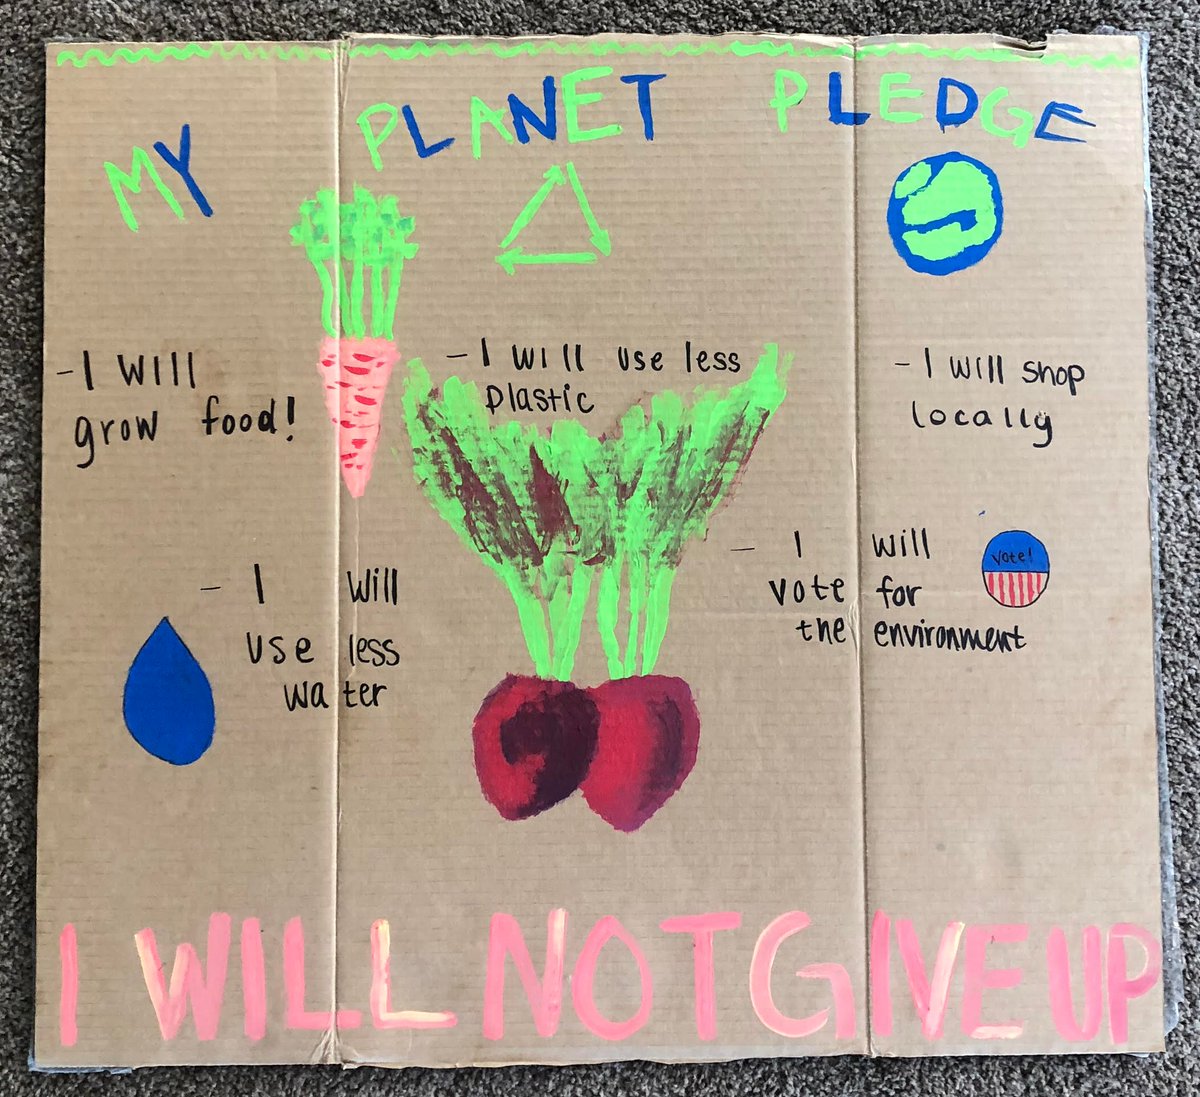 MY PLANET PLEDGE
- I WILL
grow food!
- I WILL use less
plastic
- I WILL shop
locally
- I Will
use less
water
- I Will
vote for
the environment
Vote!
I WILL NOT GIVE UP